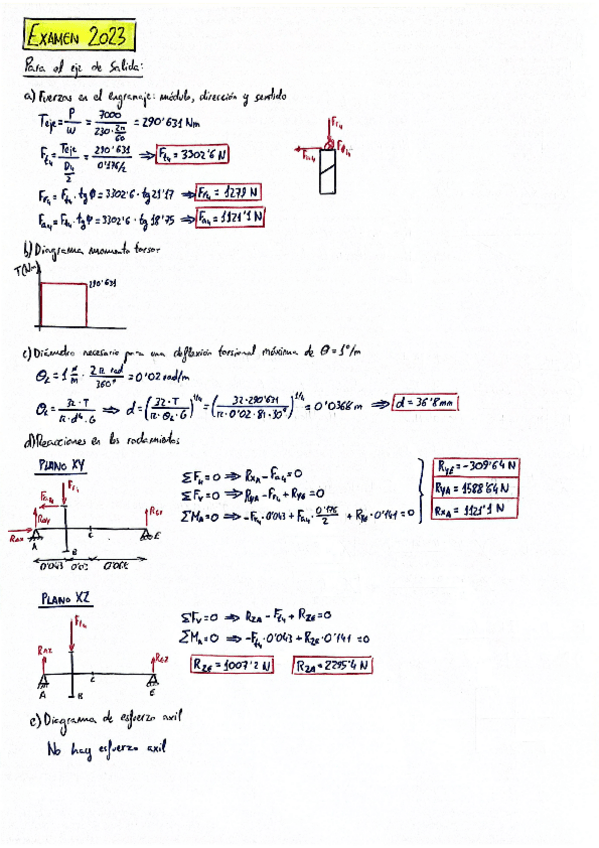 EXAMEN 2023
Para el eje de Salida:
a) Fuerzas en el engranaje: módulo, dirección y sentido
Teje = P/ω = 7000/(230·2π/60) = 290'631 Nm
Ft4 = Teje/(D4/2) = 290'631/(0'176/2) ⟹ Ft4 = 3302'6 N
Fr4 = Ft4 · tg Φ = 3302'6 · tg 21'17 ⟹ Fr4 = 1279 N
Fa4 = Ft4 · tg Ψ = 3302'6 · tg 18'75 ⟹ Fa4 = 1121'1 N
Fr4
Fa4 Ft4
b) Diagrama momento torsor
T(Nm)
290'631
c) Diámetro necesario para una deflexión torsional máxima de θ = 1º/m
θL = 1 º/m · 2π rad/360º = 0'02 rad/m
θL = 32·T/(π·d⁴·G) ⟹ d = (32·T/(π·θL·G))^1/4 = (32·290'631/(π·0'02·81·10⁹))^1/4 = 0'0368 m ⟹ d = 36'8 mm
d) Reacciones en los rodamientos
PLANO XY
ΣFH = 0 ⟹ RXA - Fa4 = 0
ΣFV = 0 ⟹ RYA - Fr4 + RYE = 0
ΣMA = 0 ⟹ -Fr4 · 0'043 + Fa4 · 0'176/2 + RYE · 0'141 = 0
RYE = -309'64 N
RYA = 1588'64 N
RXA = 1121'1 N
Fr4
Fa4
RAY
REY
RAX
A B C E
0'043
PLANO XZ
ΣFV = 0 ⟹ RZA - Ft4 + RZE = 0
ΣMA = 0 ⟹ -Ft4 · 0'043 + RZE · 0'141 = 0
RZE = 1007'2 N RZA = 2295'4 N
Ft4
RAZ
REZ
A B C E
e) Diagrama de esfuerzo axil
No hay esfuerzo axil